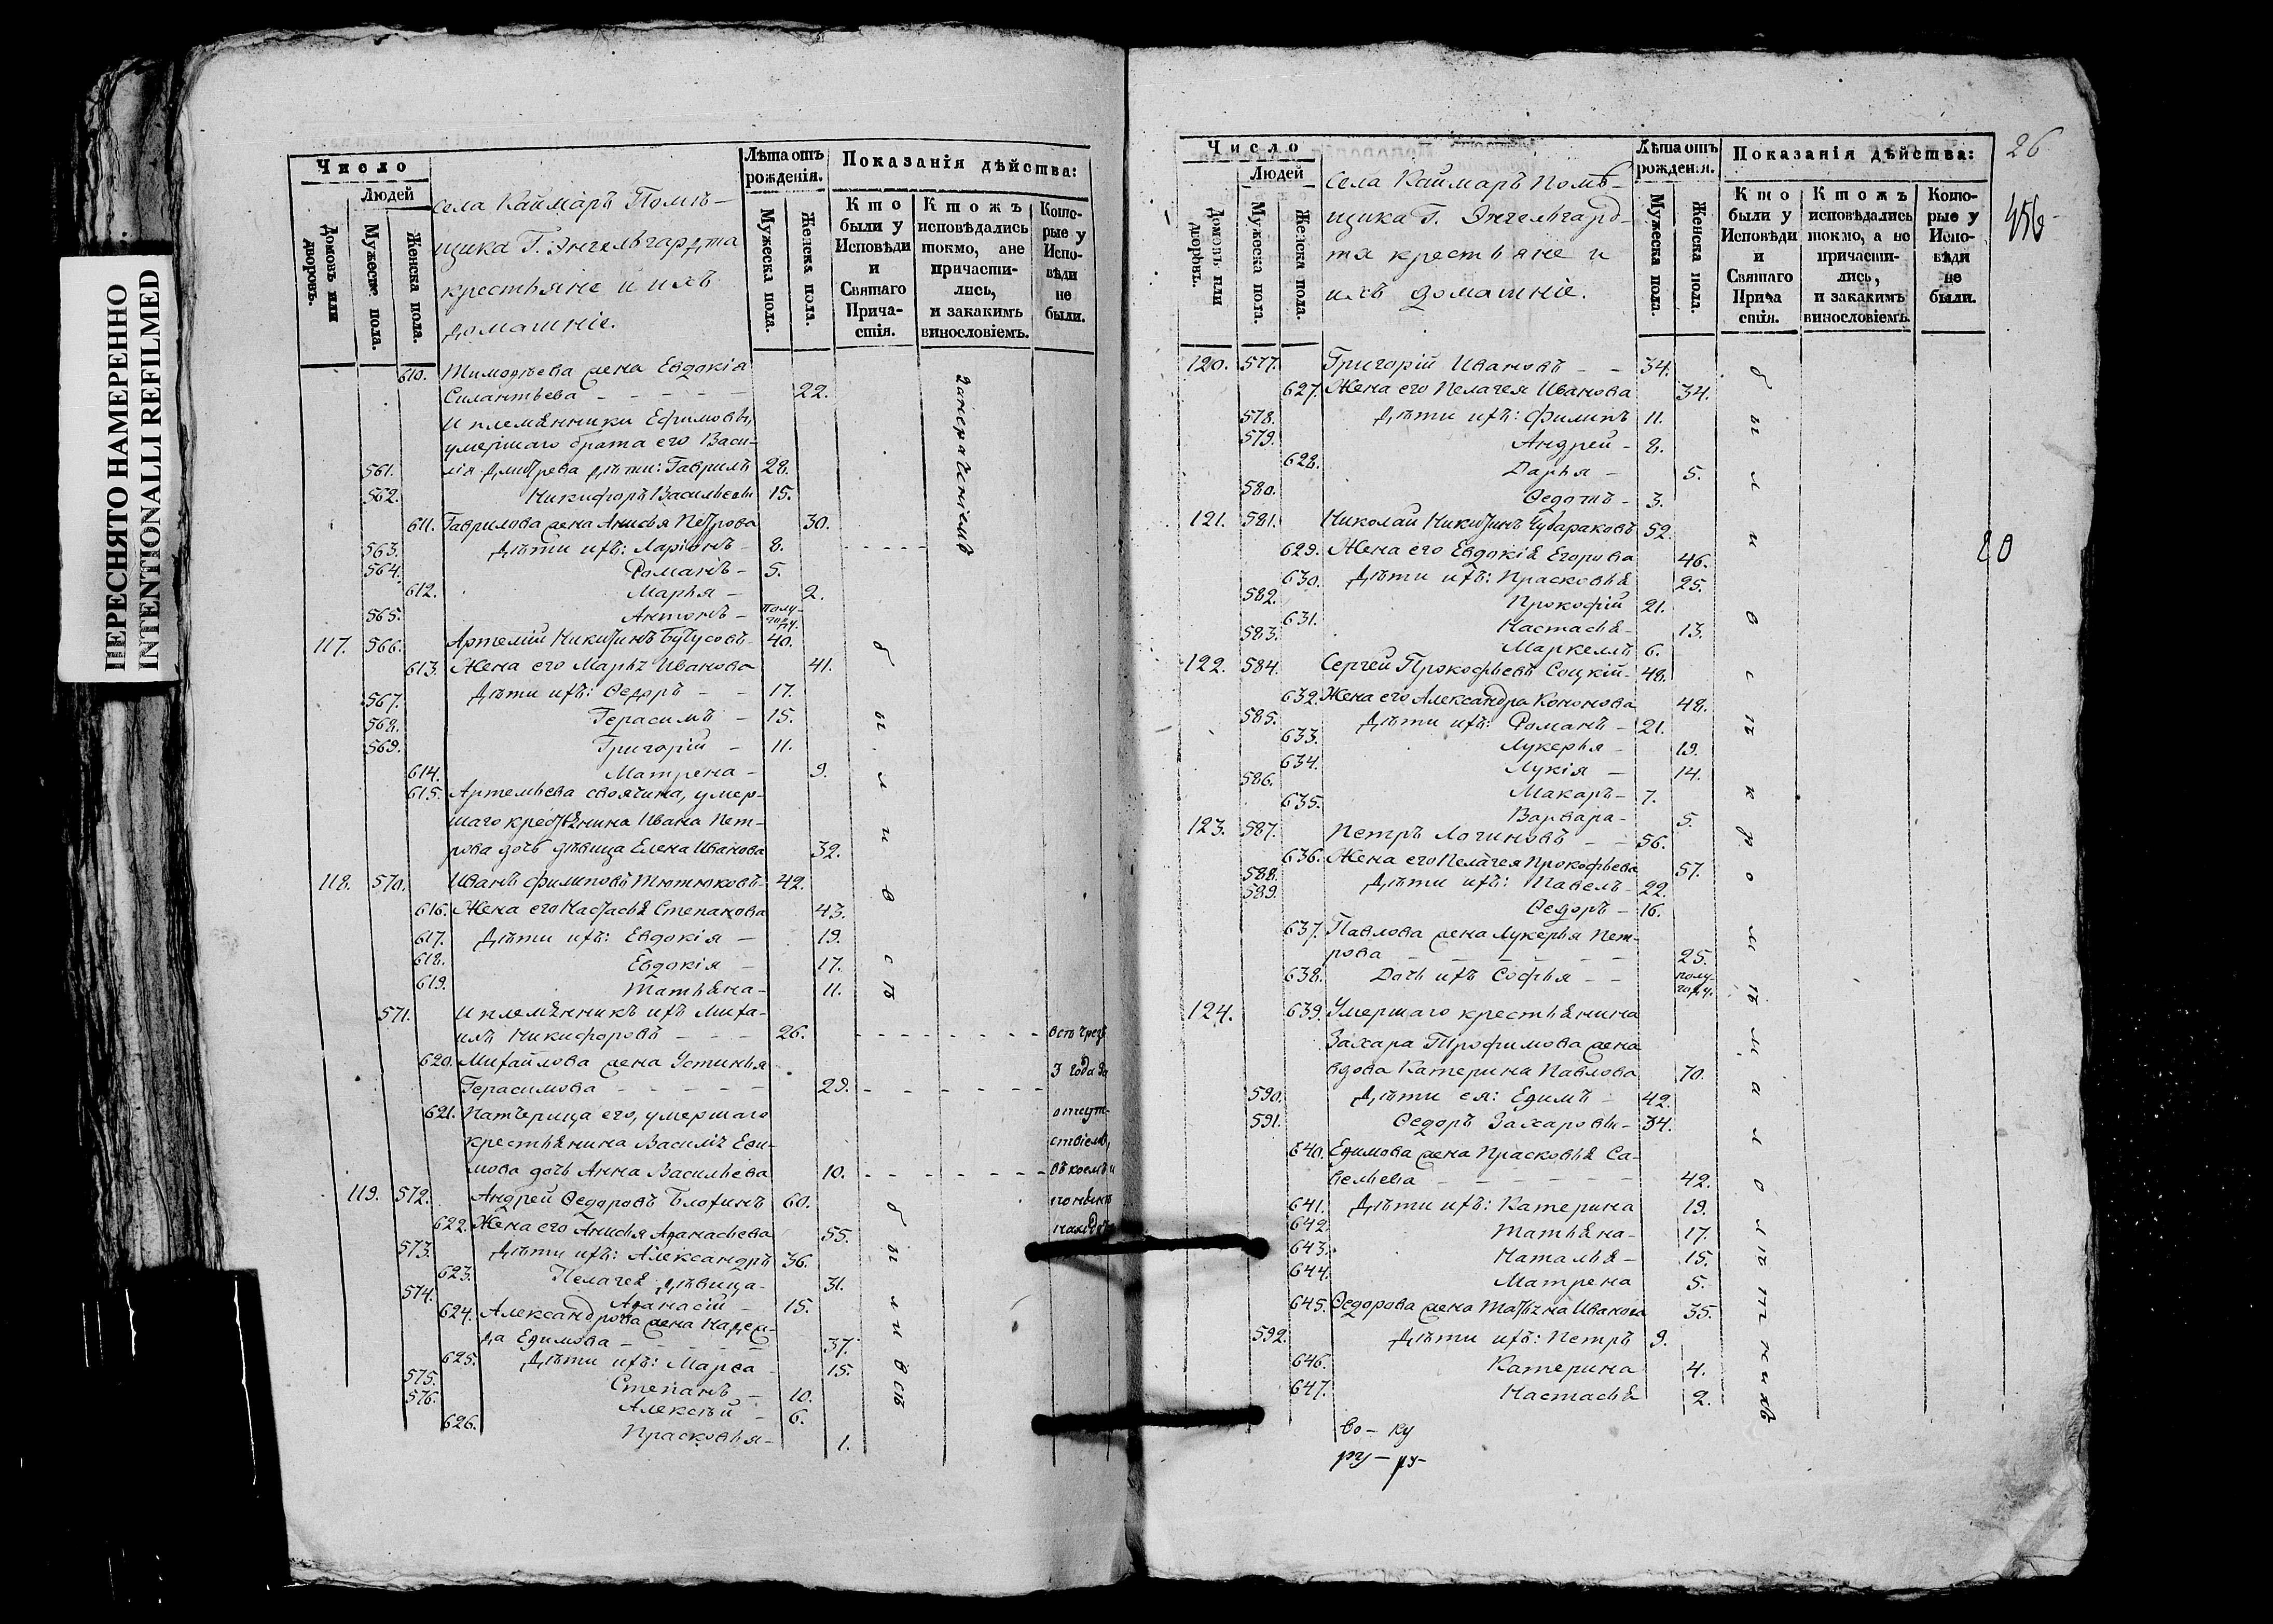 ПЕРЕСНЯТО НАМЕРЕННО
INTENTIONALLI REFILMED
Число
Людей
Домовъ или дворовъ.
Мужеска пола.
Женска пола.
села Каймаръ Помѣ-
щика Г. Энгельгардта
крестьяне и ихъ
домашніе.
Лѣта отъ рожденія.
Мужеска пола.
Женска пола.
Показанія дѣйства:
Кто были у Исповѣди и Святаго Прича-стія.
Ктожъ исповѣдались токмо, а не причасти-лись, и закакимъ винословіемъ.
Кото-рые у Испо-вѣди не были.
610. Тимоѳеева жена Евдокія
Силантьева - - - - - 22.
И племянники Ефимовы,
умершаго брата его Васи-
561. лія Дмитрева дѣти: Гаврилъ 28.
562. Никифоръ Васильевы 15.
611. Гаврилова жена Анисья Петрова 30.
563. Дѣти ихъ: Ларіонъ - 8.
564. Романъ - 5.
612. Марья - 2.
565. Антонъ - полу-году.
117. 566. Артемій Никитинъ Бутусовъ - 40.
613. Жена его Марья Иванова 41.
567. Дѣти ихъ: Ѳедоръ - - 17.
568. Герасимъ - 15.
569. Григорій - 11.
614. Матрена - 9.
615. Артемьева своячина, умер-
шаго крестьянина Ивана Пет-
рова дочь дѣвица Елена Иванова 32.
118. 570. Иванъ Филиповъ Тютюковъ - 42.
616. Жена его Настасья Степанова 43.
617. Дѣти ихъ: Евдокія - 19.
618. Евдокія - 17.
619. Татьяна - 11.
571. И племянникъ ихъ Миха-
илъ Никифоровъ - - - 26.
620. Михайлова жена Устинья
Герасимова - - - - - 29.
621. Патерица его, умершаго
крестьянина Василья Ефи-
мова дочь Анна Васильева 10.
119. 572. Андрей Ѳедоровъ Блохинъ 60.
622. Жена его Анисья Аѳанасьева 55.
573. Дѣти ихъ: Александръ 36.
623. Пелагея дѣвица - 31.
574. Аѳанасій - 15.
624. Александрова жена Надеж-
да Ефимова - - - - - 37.
625. Дѣти ихъ: Марѳа - 15.
575. Степанъ - 10.
576. Алексѣй - 6.
626. Прасковья - 1.
были всѣ
3 года за
отсут-
ствіемъ,
были всѣ
26
456
Число
Людей
Домовъ или дворовъ.
Мужеска пола.
Женска пола.
села Каймаръ Помѣ-
щика Г. Энгельгард-
та крестьяне и
ихъ домашніе.
Лѣта отъ рожденія.
Мужеска пола.
Женска пола.
Показанія дѣйства:
Кто были у Исповѣди и Святаго Прича стія.
Ктожъ исповѣдались токмо, а не причасти-лись, и закакимъ винословіемъ.
Кото-рые у Испо-вѣди не были.
120. 577. Григорій Ивановъ - - 34.
627. Жена его Пелагея Иванова 34.
578. Дѣти ихъ: Филипъ 11.
579. Андрей - 8.
628. Дарья - 5.
580. Ѳедотъ - 3.
121. 581. Николай Никитинъ Чубараковъ 52.
629. Жена его Евдокія Егорова 46.
630. Дѣти ихъ: Прасковья 25.
582. Прокофій 21.
631. Настасья - 13.
583. Маркеллъ 6.
122. 584. Сергей Прокофьевъ Соцкій - 48.
632. Жена его Александра Кононова 48.
585. Дѣти ихъ: Романъ - 21.
633. Лукерья - 19.
634. Лукія - 14.
586. Макаръ - 7.
635. Варвара - 5.
123. 587. Петръ Логиновъ - - 56.
636. Жена его Пелагея Прокофьева 57.
588. Дѣти ихъ: Павелъ - 22.
589. Ѳедоръ - 16.
637. Павлова жена Лукерья Пет-
рова - - - - - - 25.
638. Дочь ихъ Софья - - полу-году.
124. 639. Умершаго крестьянина
Захара Трофимова жена
вдова Катерина Павлова 70.
590. Дѣти ея: Ефимъ - 42.
591. Ѳедоръ Захаровы - 34.
640. Ефимова жена Прасковья Са-
вельева - - - - - - 42.
641. Дѣти ихъ: Катерина 19.
642. Татьяна - 17.
643. Наталья - 15.
644. Матрена 5.
645. Ѳедорова жена Татьяна Иванова 35.
592. Дѣти ихъ: Петръ 9.
646. Катерина 4.
647. Настасья 2.
были всѣ кромѣ малолѣтнихъ
во - ку
ру -